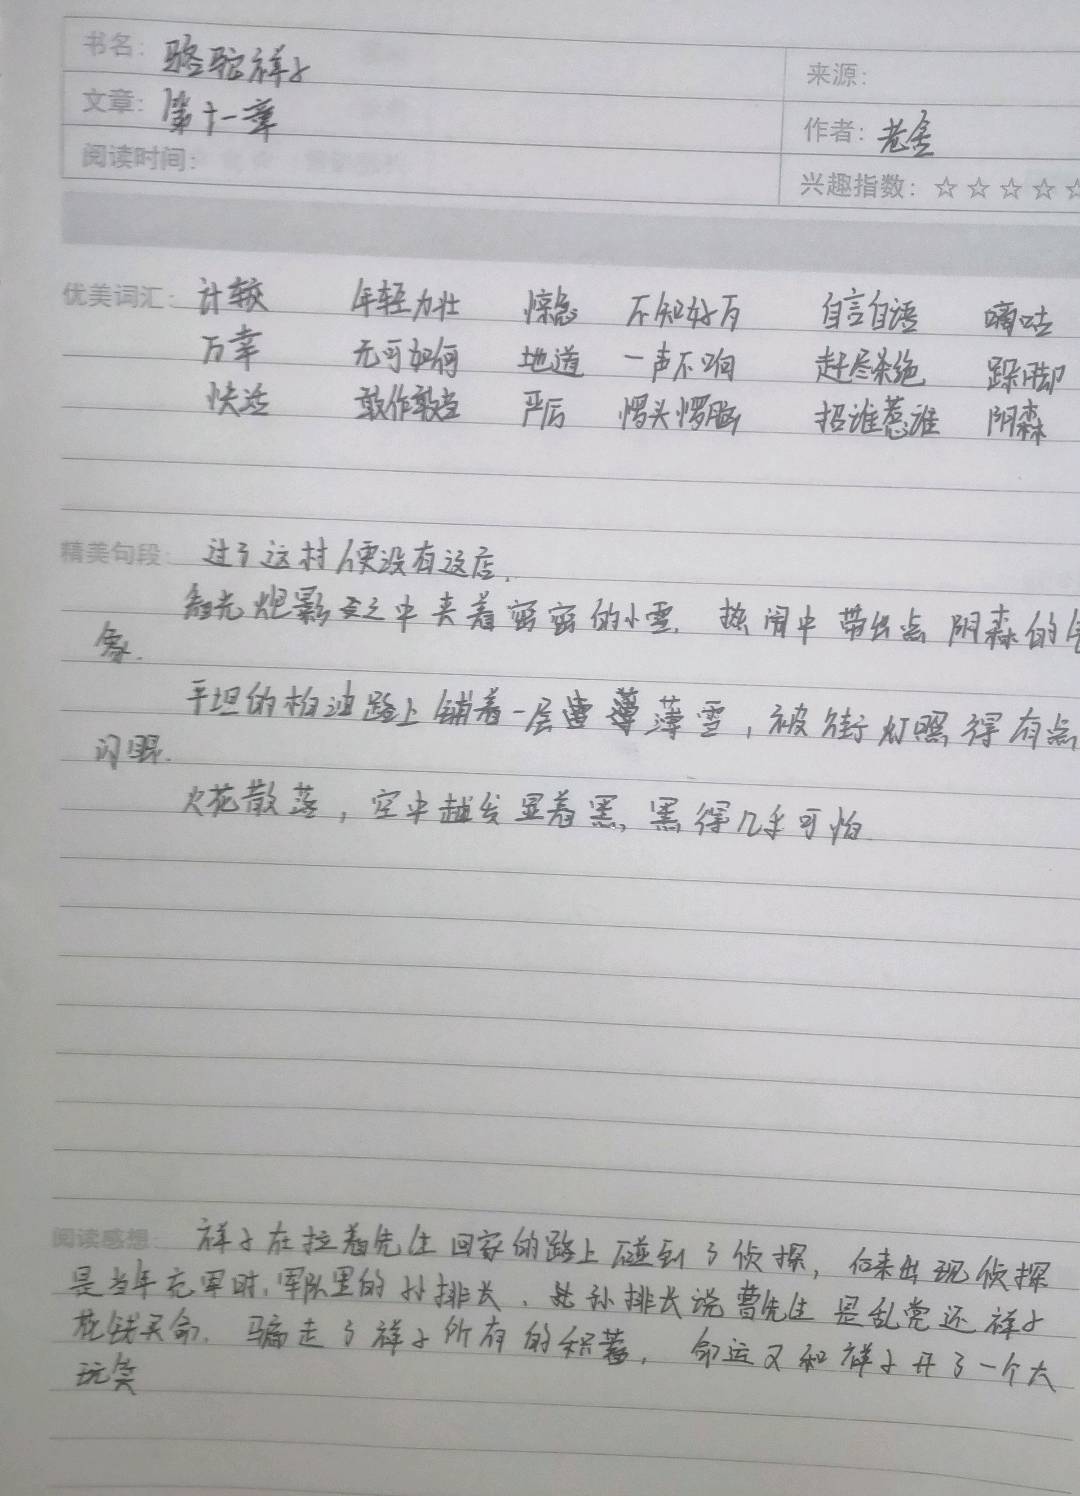 书名：骆驼祥子
来源：
文章：第十一章
作者：老舍
阅读时间：
兴趣指数：☆☆☆☆☆
优美词汇：计较 年轻力壮 惊急 不知好歹 自言自语 嘀咕
万幸 无可如何 地道 一声不响 赶尽杀绝 跺脚
快活 敢作敢当 严厉 愣头愣脑 招谁惹谁 阴森
精美句段：过了这村便没有这店．
光炮影之中夹着密密的小雪．热闹中带出点阴森的
象．
平坦的柏油路上铺着一层薄薄雪，被街灯照得有点
闪眼．
火花散落，空中越发显着黑，黑得几乎可怕
阅读感想：祥子在拉着先生回家的路上碰到了侦探，后来出现侦探
是当年充军时，军队里的孙排长，孙排长说曹先生是乱党还祥子
花钱买命．骗走了祥子所有的积蓄，命运又和祥子开了一个大
玩笑